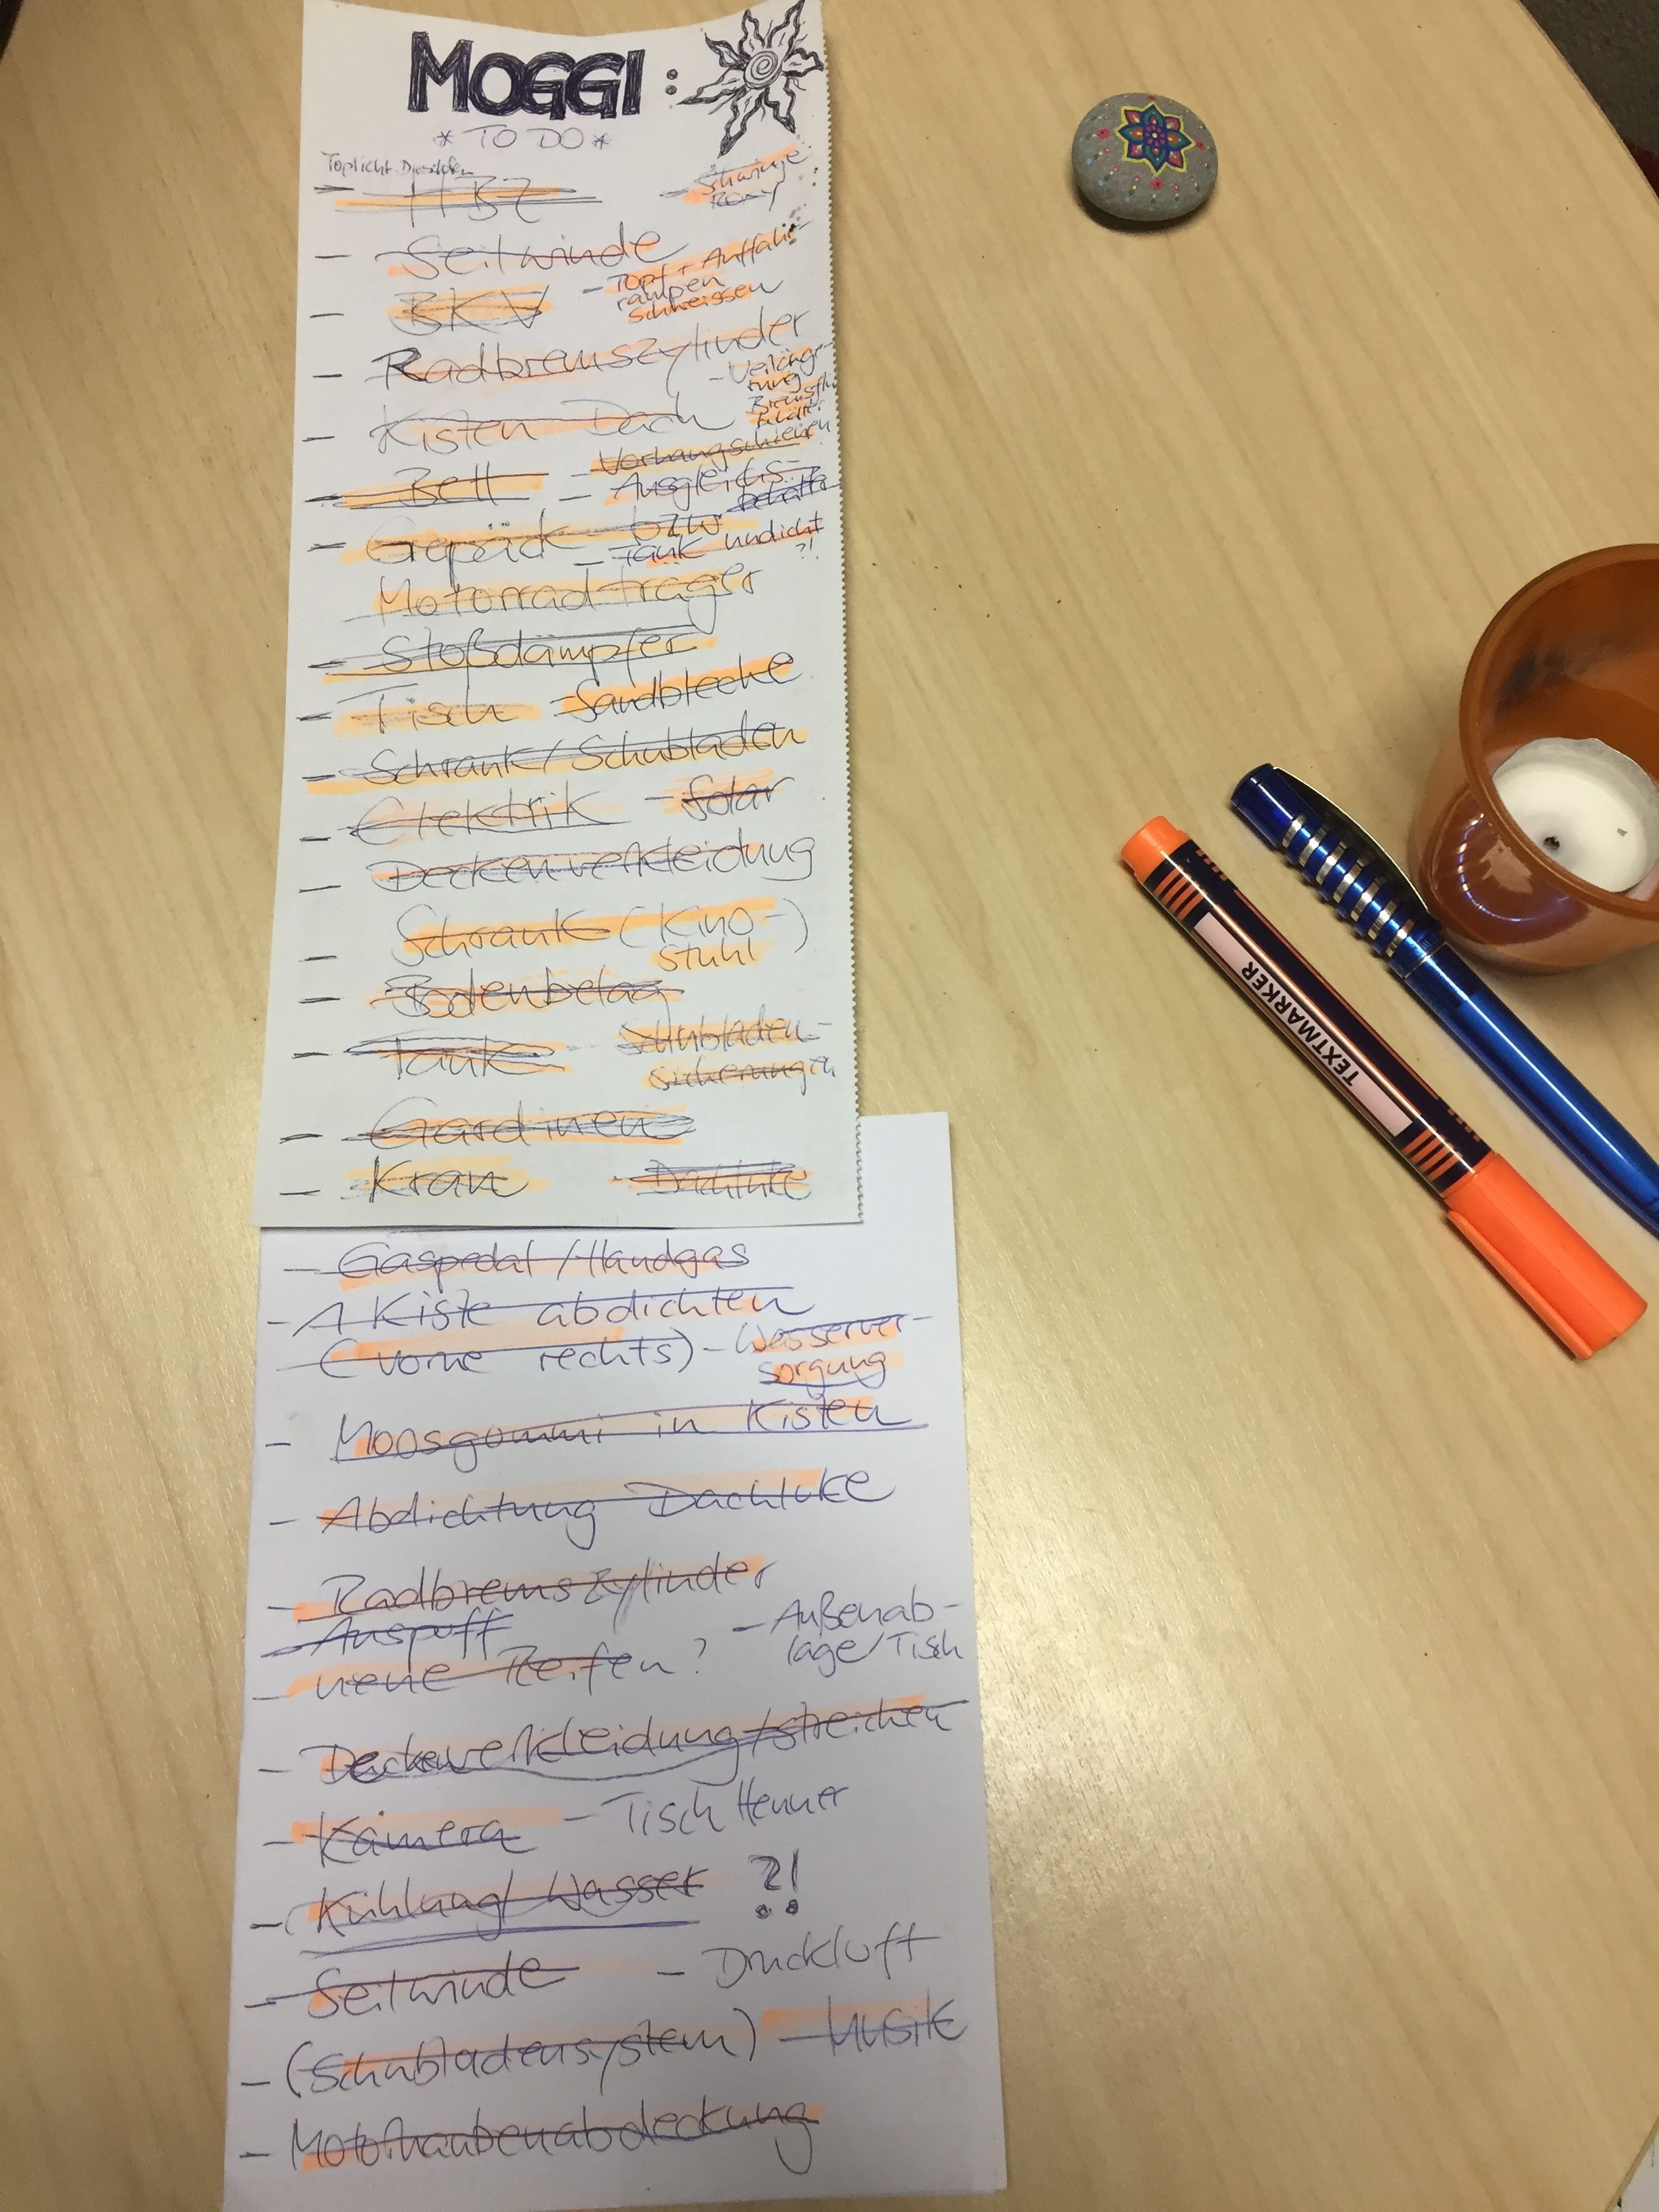 MOGGI:
* TO DO *
Toplicht
- HBZ
- Schwinge
Roxy
- Seilwinde
- BKV
- Topf + Auffahr-
rampen
schweissen
- Radbremszylinder
- Verlänge-
rung
- Kisten Dach
- Vorhangschienen
- Bett
- Ausgleichs-
behälter
- Gepäck- bzw.
- Tank undicht
?!
Motorradträger
- Stoßdämpfer
- Tisch
- Sandbleche
- Schrank/Schubladen
- Elektrik
- Solar
- Deckenverkleidung
- Schrank (Kino-)
stuhl
- Bodenbelag
- Tank
- Schubladen-
sicherungen
- Gardinen
- Kran
- Dachluke
- Gaspedal/Handgas
- 1 Kiste abdichten
(vorne rechts)
- Wasserver-
sorgung
- Moosgummi in Kisten
- Abdichtung Dachluke
- Radbremszylinder
- Auspuff
- neue Reifen?
- Außenab-
lage/Tisch
- Deckenverkleidung/streichen
- Kamera
- Tisch Henner
- Kühlung/Wasser ?!
- Seilwinde
- Druckluft
- (Schubladensystem)
- Musik
- Motorhaubenabdeckung
TEXTMARKER